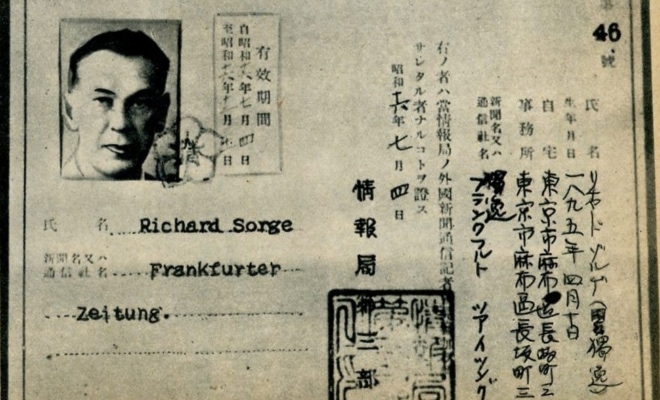 第
46
號
氏 名 リヒヤルド ゾルゲ（男獨逸）
生年月日 一八九五年四月十日
自宅 東京市麻布區長坂町三
事務所 東京市麻布區長坂町三
新聞名又ハ
通信社名
獨逸
フランクフルト ツアイツング
右ノ者ハ當情報局ノ外國新聞通信記者
サレタル者ナルコトヲ證ス
昭和十六年七月四日
情報局第三部
有效期間
自昭和十六年七月四日
至昭和十六年
氏 名 Richard Sorge
新聞名又ハ
通信社名 Frankfurter
Zeitung.